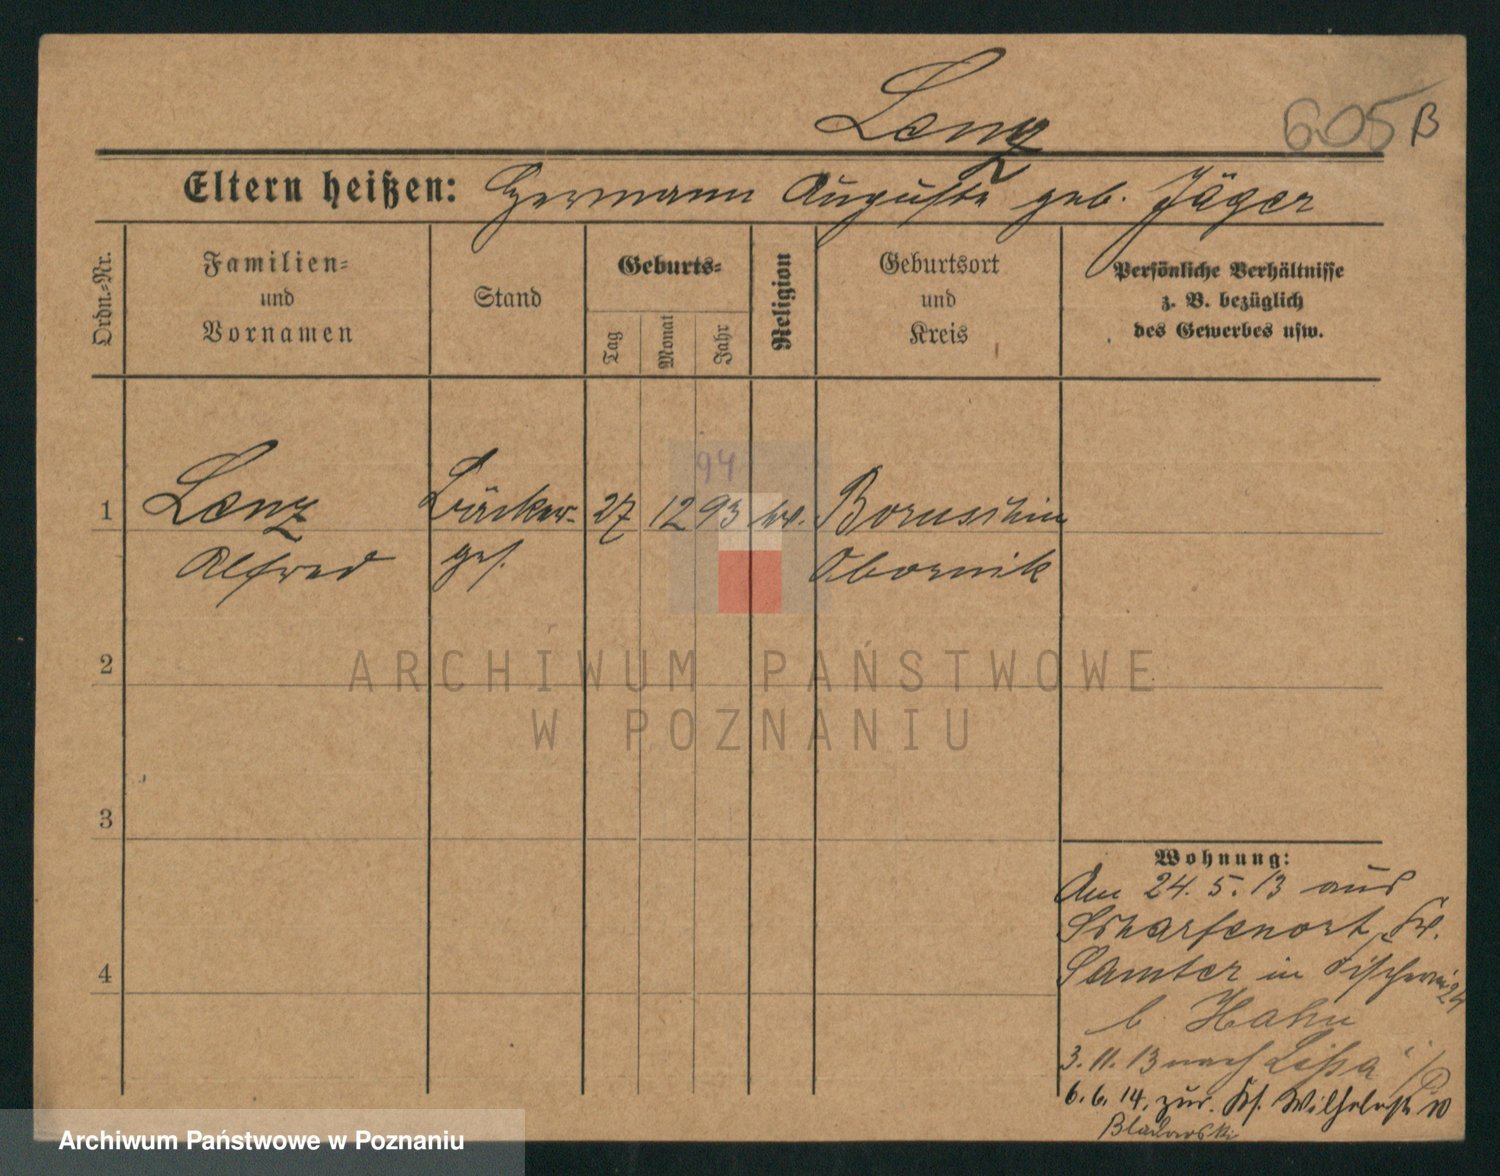 Lenz
605 B
Eltern heißen: Hermann Auguste geb. Jäger
Ordn.-Nr.
Familien-
und
Vornamen
Stand
Geburts-
Tag
Monat
Jahr
Religion
Geburtsort
und
Kreis
Persönliche Verhältnisse
z. B. bezüglich
des Gewerbes usw.
94
1 Lenz Bäcker- 27 12 93 ev.
Alfred ges. Obornik
2
3
4
Wohnung:
Am 24.5.13 aus
Scharfenort, Kr.
Samter in Fischerei 24
b. Hahn
3.11.13 nach Lissa i/P
6.6.14. zur. Wilhelmstr 10
ARCHIWUM PAŃSTWOWE
W POZNANIU
Archiwum Państwowe w Poznaniu